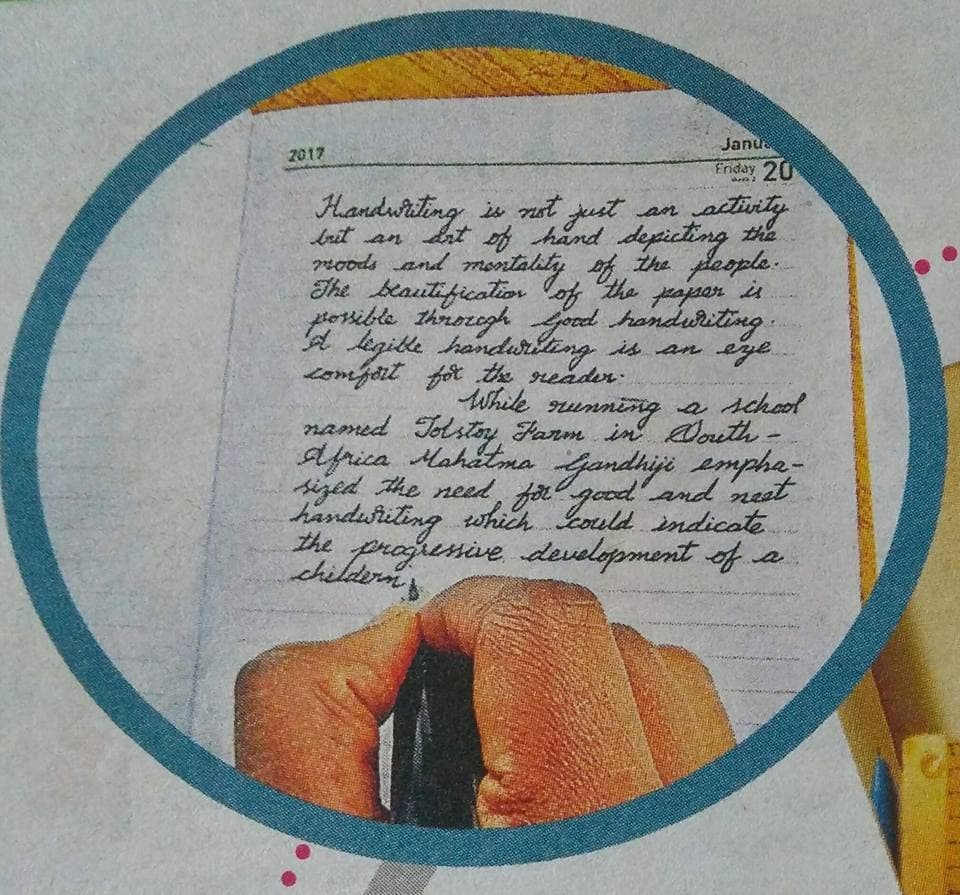 2017
Friday 20
Handwriting is not just an activity
but an art of hand depicting the
moods and mentality of the people.
The beautification of the paper is
possible through Good handwriting.
A legible handwriting is an eye
comfort for the reader.
While running a school
named Tolstoy Farm in South-
Africa Mahatma Gandhiji empha-
sized the need for good and neat
handwriting which could indicate
the progressive development of a
childern